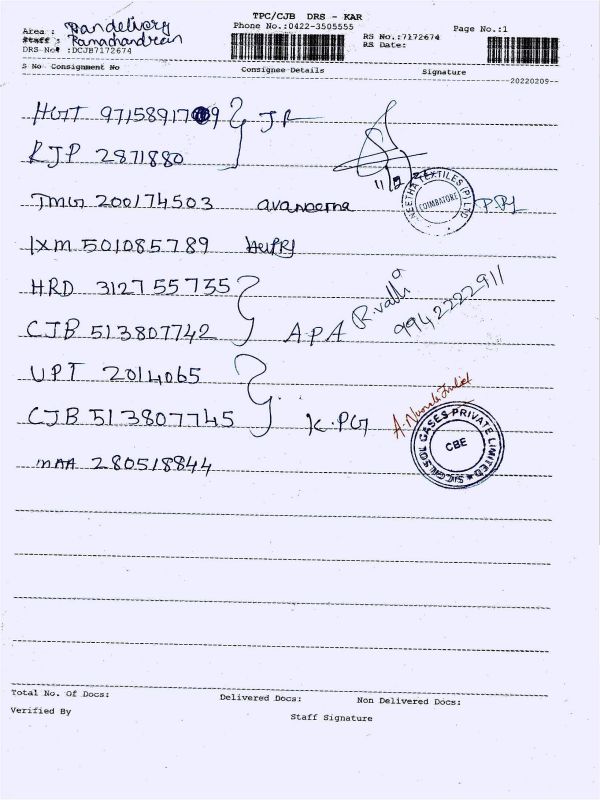 TPC/CJB DRS - KAR
Phone No.:0422-3505555
Page No.:1
Area : Pandelivery
Staff : Ramachandran
RS No.:7172674
DRS No# :DCJB7172674
RS Date:
S No Consignment No Consignee Details Signature
20220209--
HGT 9715891709 JR
RJP 2871880
TMG 200174503 avaneema
NEETHA TEXTILES (P) LTD
COIMBATORE
IXM 501085789
HRD 3127 55735
R.valli
9942222911
CJB 513807742 A.P.A
UPT 2014065
CJB 513807745 K.PG
SICGILSOL GASES PRIVATE LIMITED
CBE
MAA 280518844
Total No. Of Docs: Delivered Docs: Non Delivered Docs:
Verified By
Staff Signature